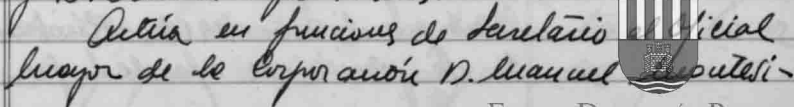 Actúa en funciones de Secretario el Oficial
Mayor de la Corporación D. Manuel Montesi-